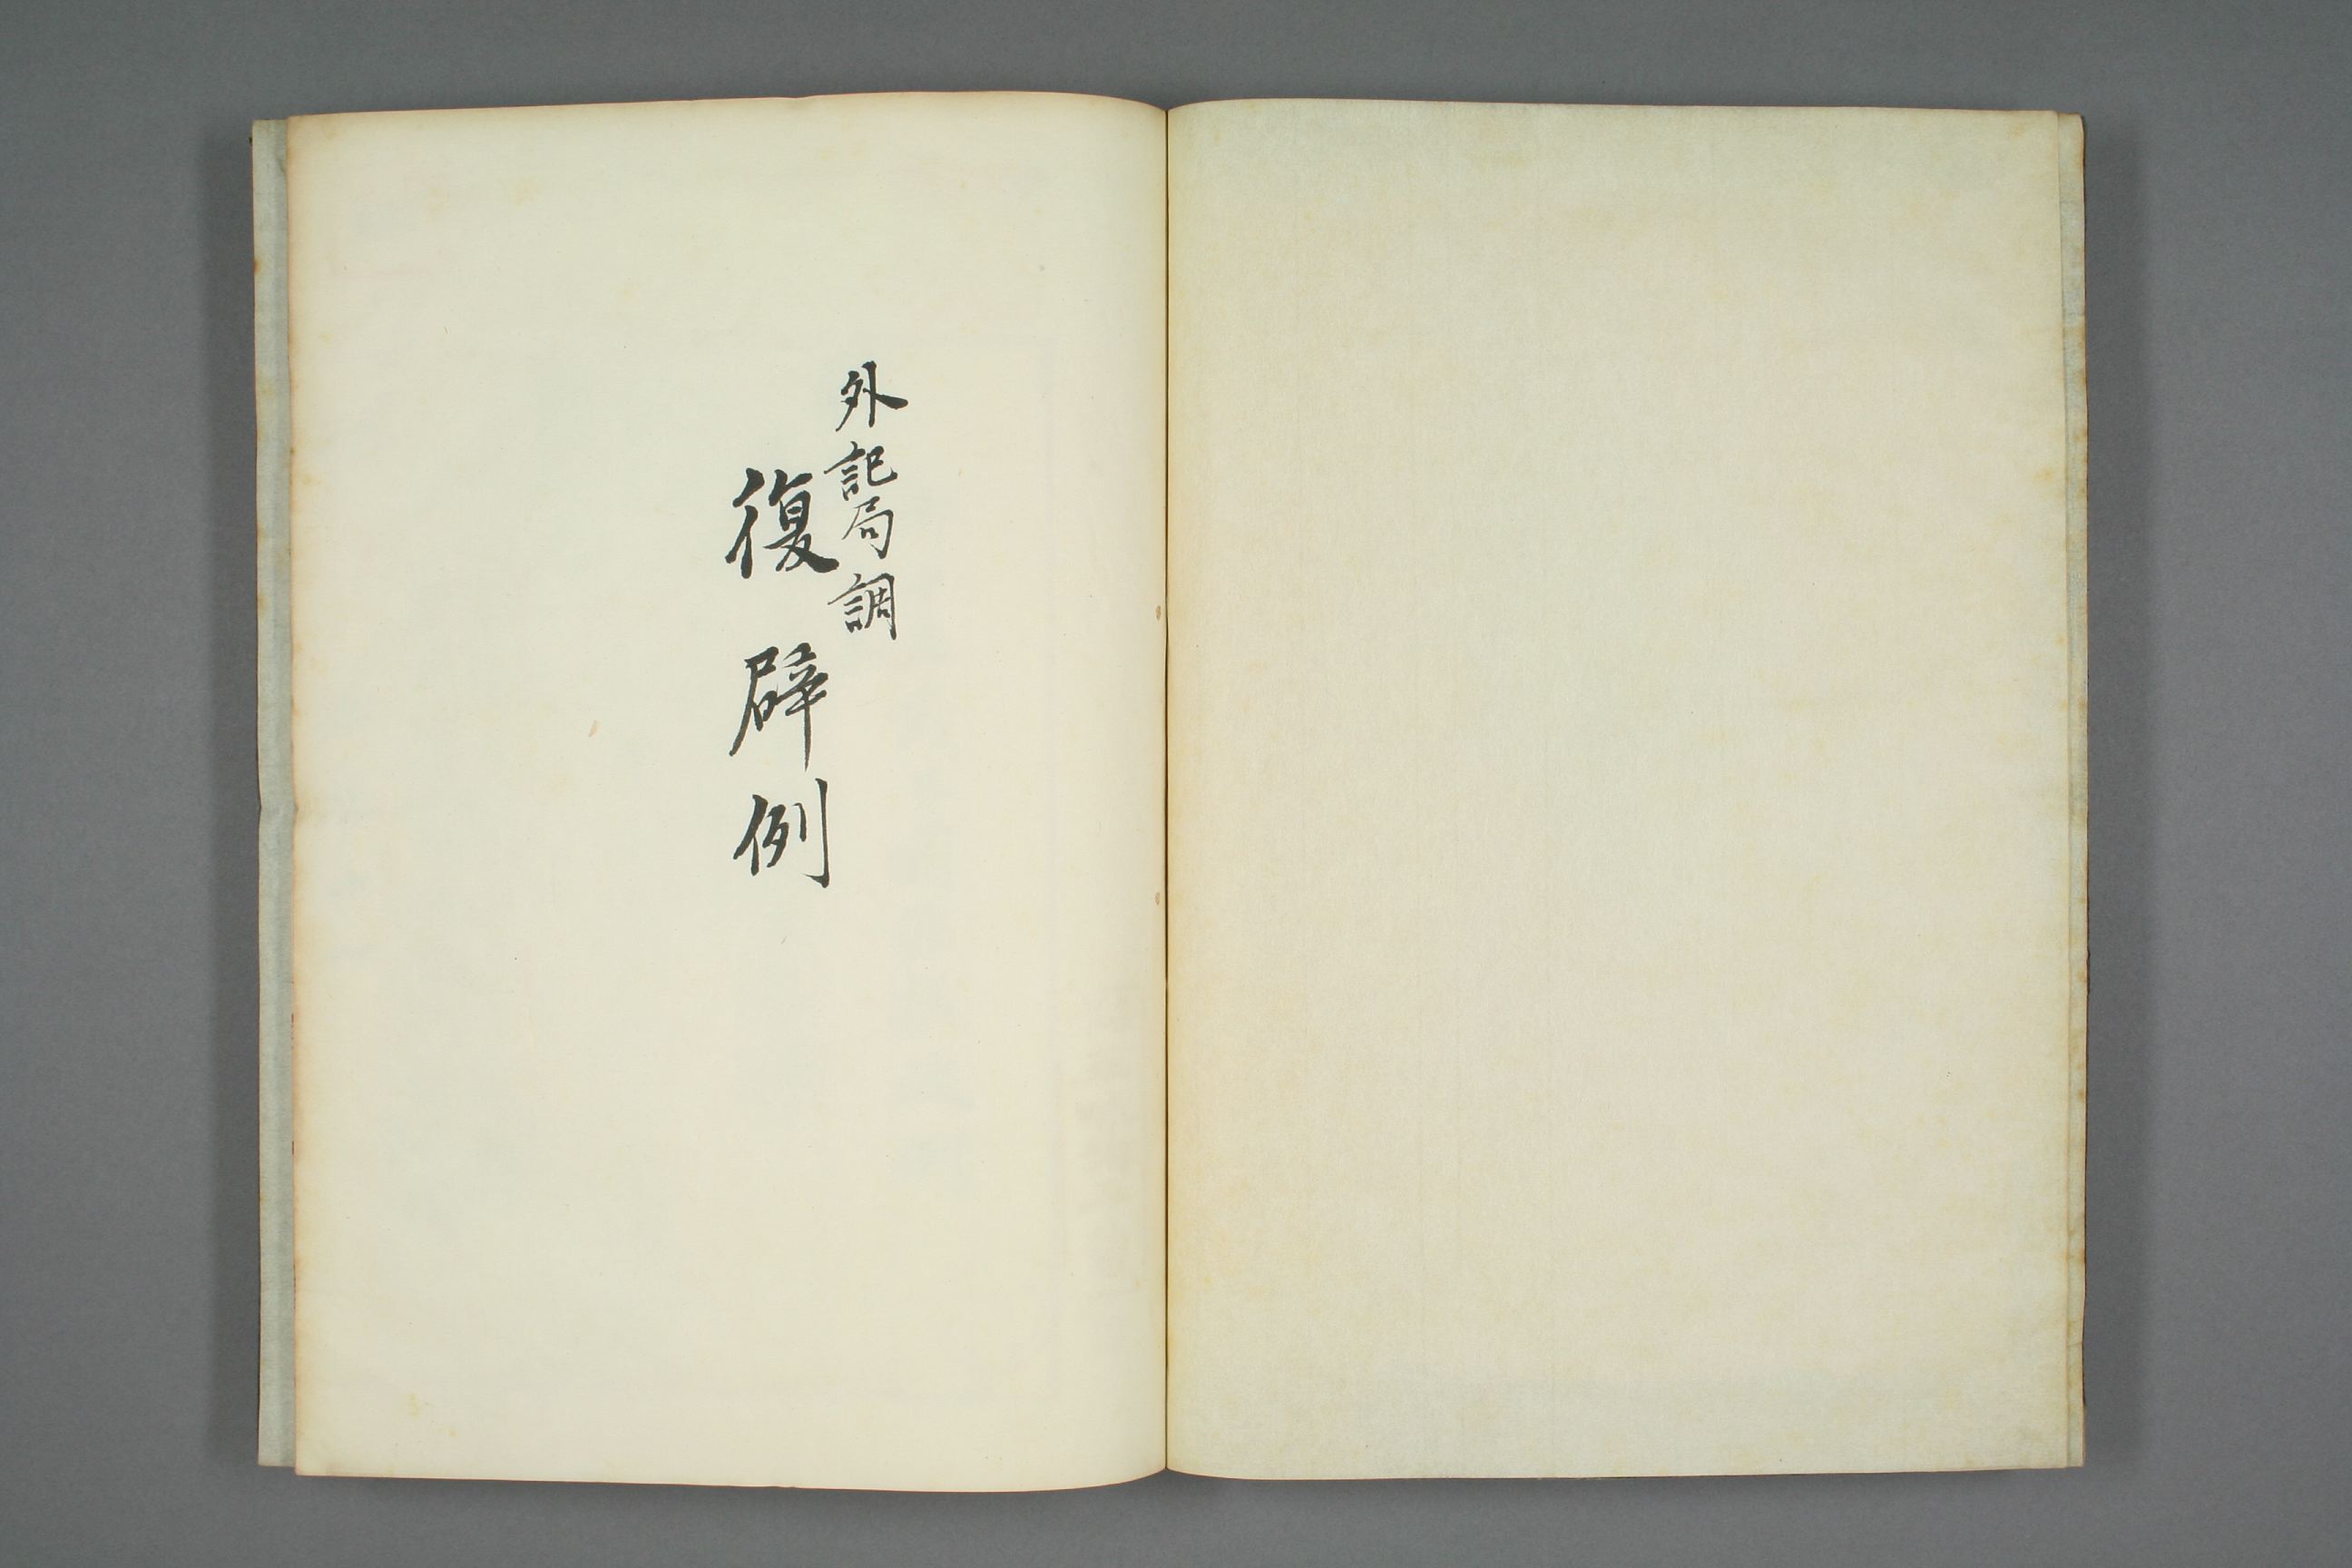 外記局調
復辟例